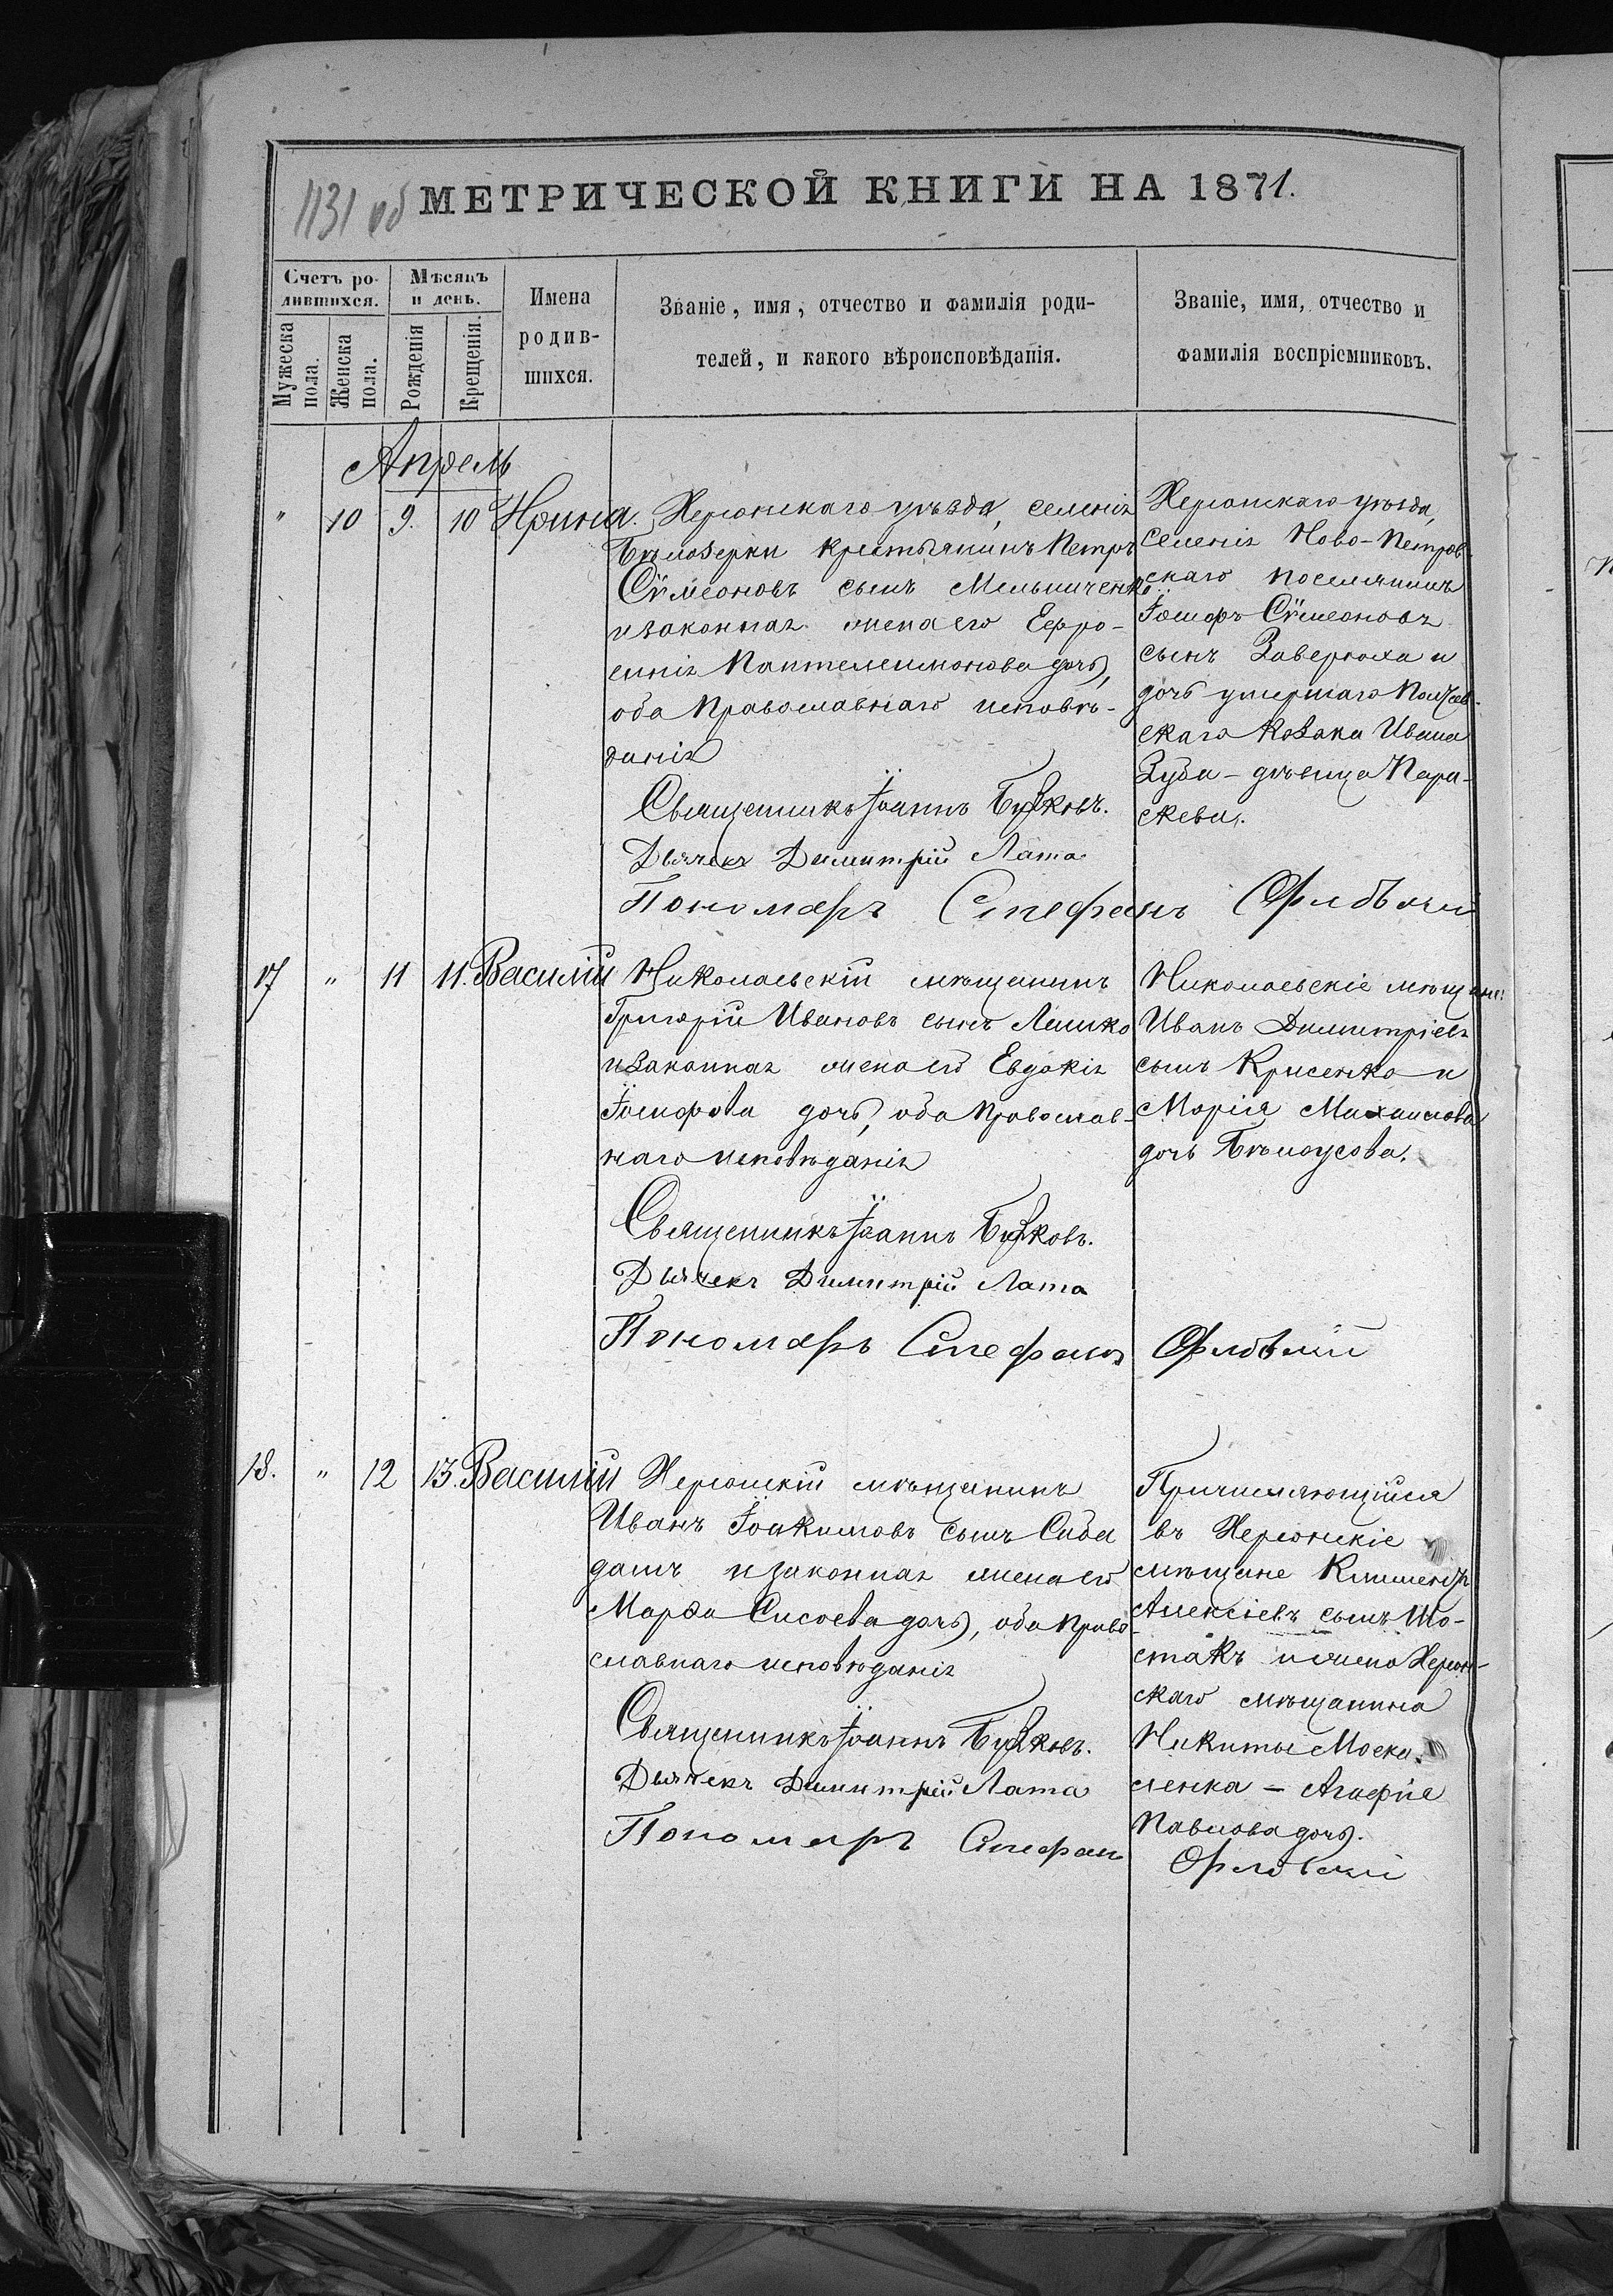 1131 об
МЕТРИЧЕСКОЙ КНИГИ НА 1871.
Счетъ ро-
дившихся.
Мѣсяцъ
и день.
Мужеска
пола.
Женска
пола.
Рожденія
Крещенія.
Имена
родив-
шихся.
Званіе, имя, отчество и фамилія роди-
телей, и какого вѣроисповѣданія.
Званіе, имя, отчество и
фамилія воспріемниковъ.
Апрель
" 10 9. 10 Ирина.
Херсонскаго уѣзда, селенія
Бѣлозерки крестьянинъ Петръ
Сѵмеоновъ сынъ Мельниченко
и законная жена его Евфро-
синія Пантелеимонова дочь,
оба Православнаго исповѣ-
данія
Священникъ Іоаннъ
Дьячекъ Димитрій Лата
Пономарь Стефанъ Орловскій
Херсонскаго уѣзда,
селенія Ново-Петров-
скаго поселянинъ
Іосифъ Сѵмеоновъ
сынъ Заверюха и
дочь умершаго
скаго козака Ивана
Зуба - дѣвица Пара-
скева.
17 " 11 11. Василій
Николаевскій мѣщанинъ
Григорій Ивановъ сынъ Ляшко
и законная жена его Евдокія
Іосифова дочь, оба Православ-
наго исповѣданія
Священникъ Іоаннъ
Дьячекъ Димитрій Лата
Пономарь Стефанъ Орловскій
Николаевскіе мѣщане:
Иванъ Димитріевъ
сынъ Крисенко и
Марія Михаилова
дочь Бѣлоусова.
18. " 12 13. Василій
Херсонскій мѣщанинъ
Иванъ Іоакимовъ сынъ
и законная жена его
Марѳа Сисоева дочь, оба Право-
славнаго исповѣданія
Священникъ Іоаннъ
Дьячекъ Димитрій Лата
Пономарь Стефанъ
Причисляющійся
въ Херсонскіе
мѣщане Климентъ
Алексіевъ сынъ Шо-
стакъ и жена Херсон-
скаго мѣщанина
Никиты Моска-
ленка - Агафія
Павлова дочь.
Орловскій